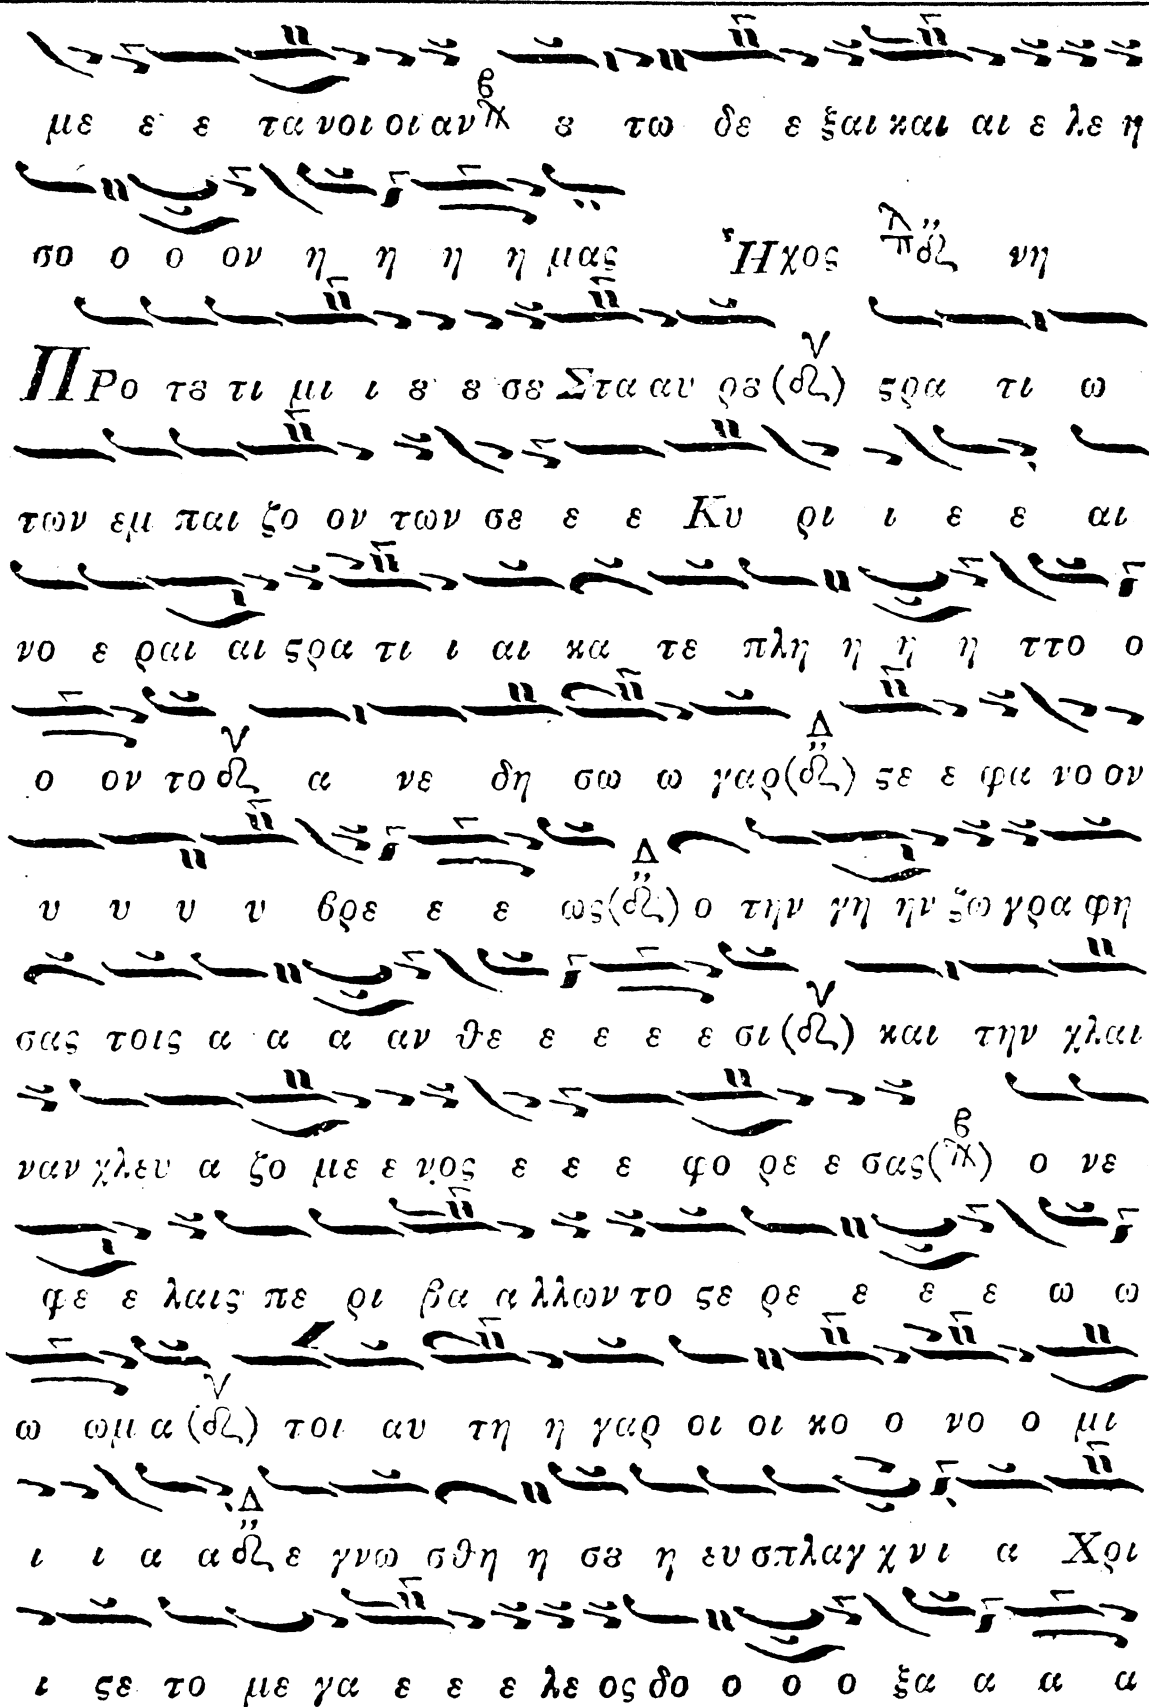 με ε ε τα νοι οι αν ȣ τω δε ε ξαι και αι ε λε η
σο ο ο ον η η η η μας Ἦχος πλ δ νη
ΠΡο τȣ τι μι ι ȣ ȣ σȣ Στα αυ ρȣ ( ) ϛρα τι ω
των εμ παι ζο ον των σε ε ε Κυ ρι ι ε ε αι
νο ε ραι αι ϛρα τι ι αι κα τε πλη η η η ττο ο
ο ον το α νε δη σω ω γαρ ( ) ϛε ε φα νο ον
υ υ υ υ βρε ε ε ως ( ) ο την γη ην ζω γρα φη
σας τοις α α α αν θε ε ε ε ε σι ( ) και την χλαι
ναν χλευ α ζο με ε νος ε ε ε φο ρε ε σας ( ) ο νε
φε ε λαις πε ρι βα α λλων το ϛε ρε ε ε ε ω ω
ω ωμ α ( ) τοι αυ τη η γαρ οι οι κο ο νο ο μι
ι ι α α ε γνω σθη η σȣ η ευ σπλαγ χ νι α Χρι
ι ϛε το με γα ε ε ε λε ος δο ο ο ο ξα α α α